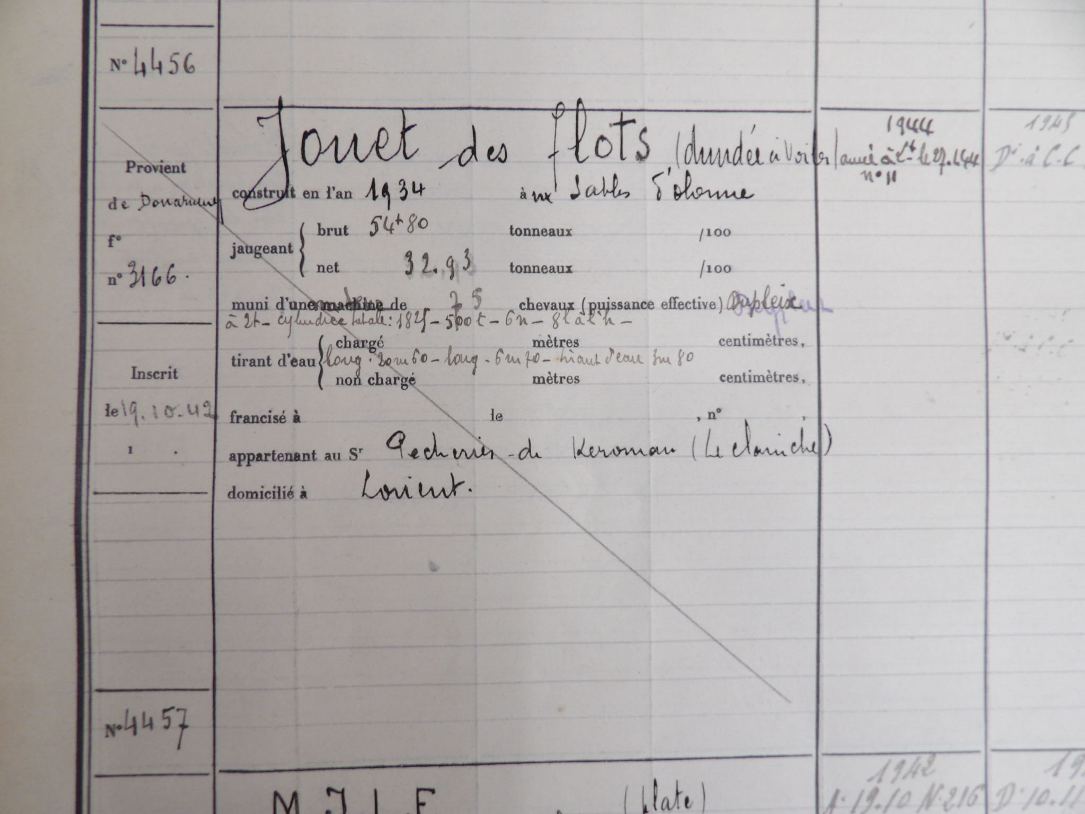 N° 4456
Jouet des flots (dundée à voiles)
1944
armé à Lt le 27.1.44
n° 11
1945
D. à C.C
Provient
de Douarnenez
f°
n° 3166.
construit en l'an 1934 à ux Sables d'olonne
jaugeant
brut 54 80 tonneaux /100
net 32.93 tonneaux /100
muni d'une machine de 75 chevaux (puissance effective) Dupleix
à 2t - cylindrée totale: 182l - 500t - 6n - 8l à l'h -
tirant d'eau
chargé mètres centimètres,
long. 20m60 - larg. 6m70 - tirant d'eau 3m80
non chargé mètres centimètres,
Inscrit
le 19.10.42
francisé à le , n° ,
appartenant au Sr Pecheries de Keroman (Le clainche)
domicilié à Lorient.
N° 4457
1942
A. 19.10 N. 216
D. 10.11
(plate)